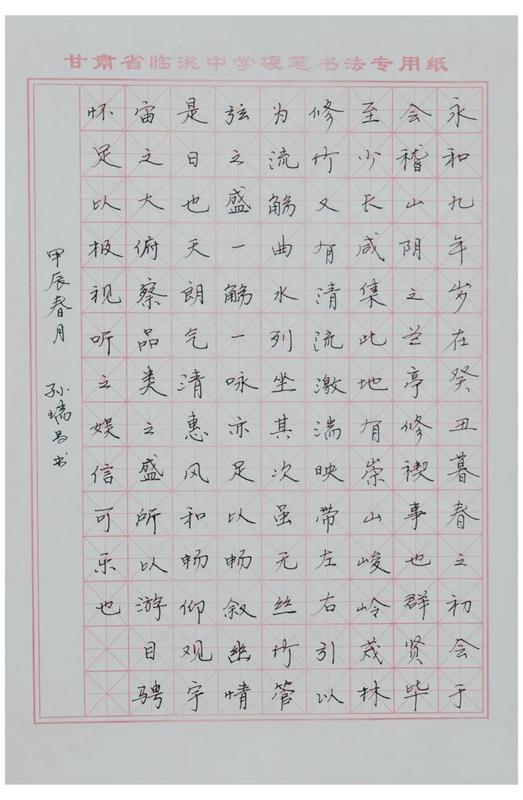 甘肃省临洮中学硬笔书法专用纸
永和九年岁在癸丑暮春之初会于
会稽山阴之兰亭修禊事也群贤毕
至少长咸集此地有崇山峻岭茂林
修竹又有清流激湍映带左右引以
为流觞曲水列坐其次虽无丝竹管
弦之盛一觞一咏亦足以畅叙幽情
是日也天朗气清惠风和畅仰观宇
宙之大俯察品类之盛所以游目骋
怀足以极视听之娱信可乐也
甲辰春月 孙瑞昌书